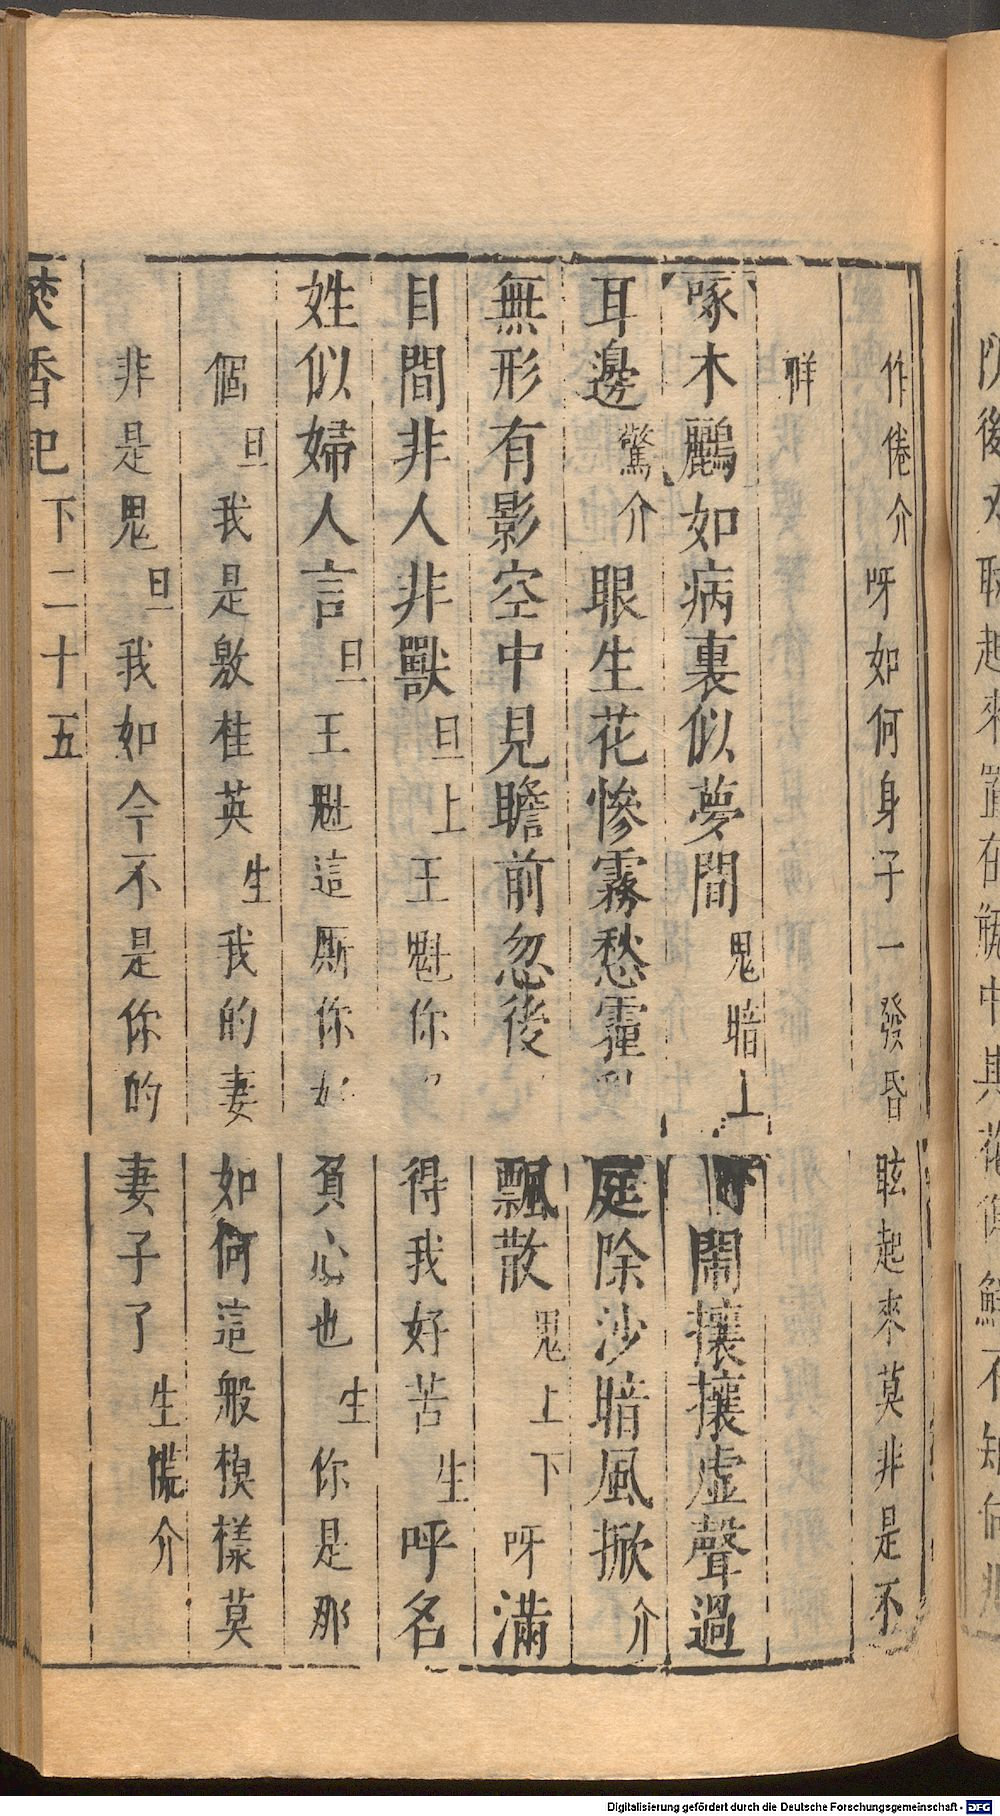 作倦介 呀如何身子一發昏眩起來莫非是不
祥
啄木鸝如病裏似夢間 鬼暗上 鬧攘攘虛聲過
耳邊 驚介 眼生花慘霧愁霾 庭除沙暗風掀 介
無形有影空中見瞻前忽後 飄散 鬼上下 呀滿
目間非人非獸 旦上 王魁你 得我好苦 生 呼名
姓似婦人言 旦 王魁這厮你 負心也 生 你是那
個 旦 我是敫桂英 生 我的妻如何這般模樣莫
非是鬼 旦 我如今不是你的妻子了 生慌介
焚香記 下二十五
Digitalisierung gefördert durch die Deutsche Forschungsgemeinschaft - DFG